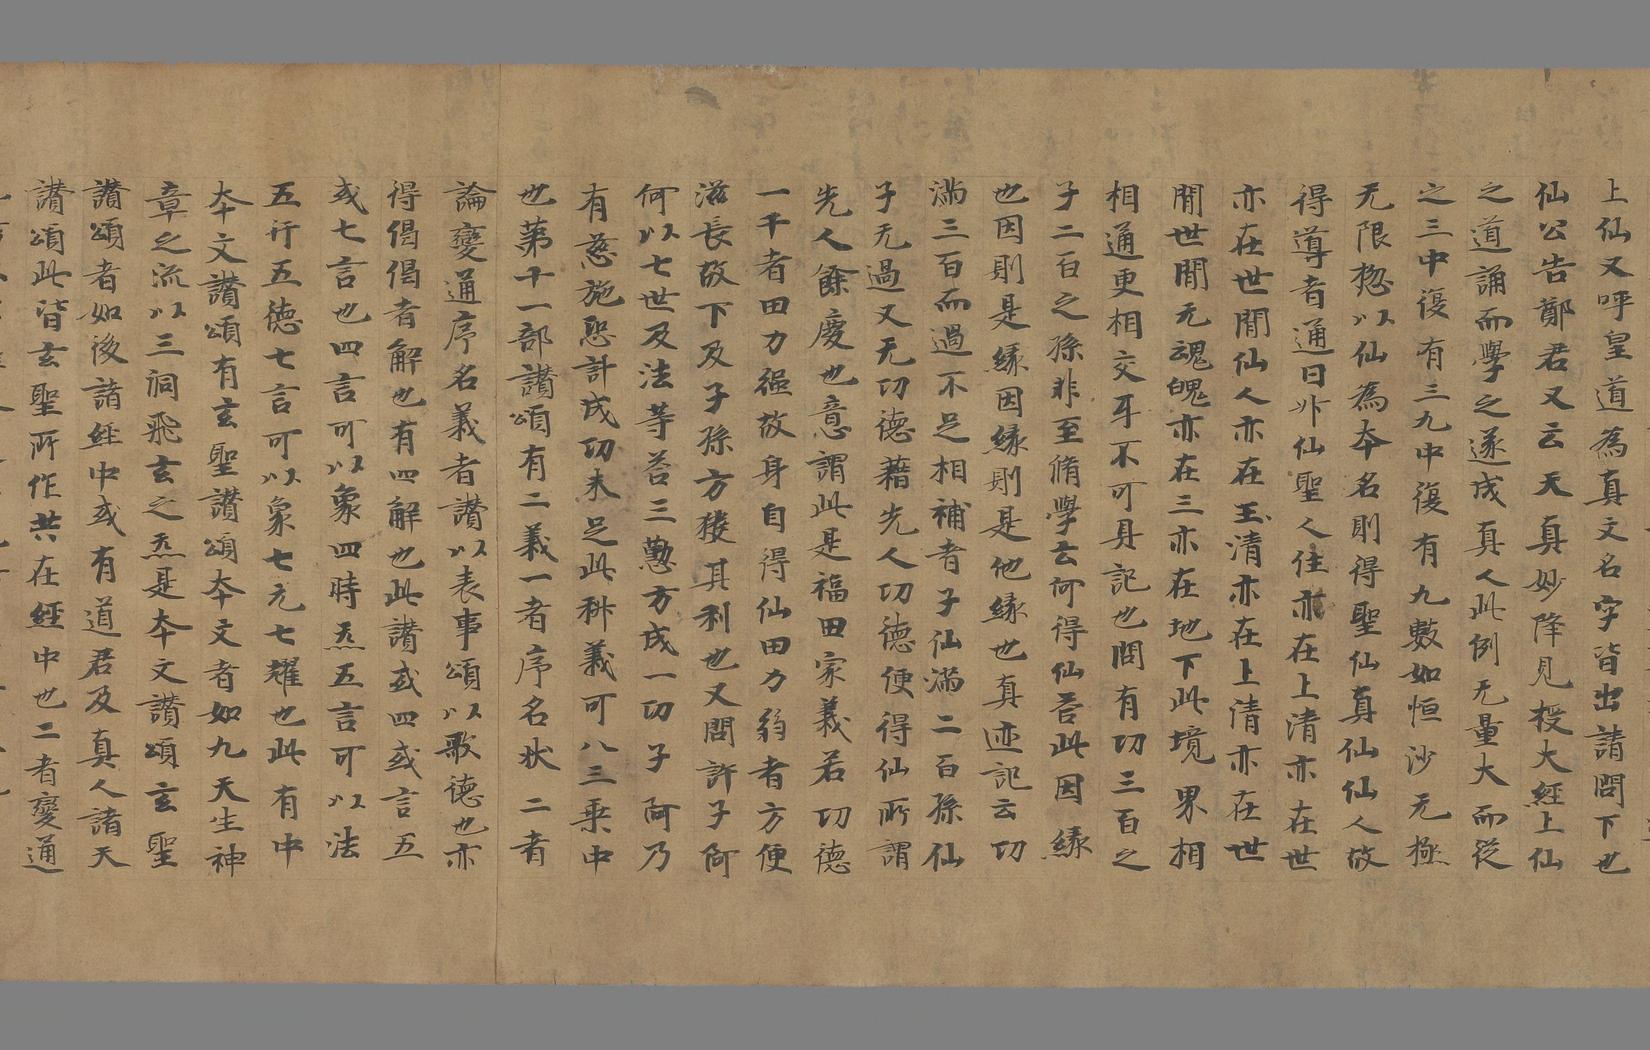 上仙又呼皇道為真文名字皆出請問下也
仙公告鄭君又云天真妙降見授大經上仙
之道誦而學之遂成真人此例无量大而從
之三中復有三九中復有九數如恒沙无極
无限惣以仙為本名則得聖仙真仙仙人故
得導者通曰外仙聖人住亦在上清亦在世
亦在世間仙人亦在玉清亦在上清亦在世
間世間无魂魄亦在三亦在地下此境界相
相通更相交耳不可具記也問有功三百之
子二百之孫非至脩學云何得仙荅此因緣
也因則是緣因緣則是他緣也真迹記云功
滿三百而過不足相補者子仙滿二百孫仙
子无過又无功德藉先人功德便得仙所謂
先人餘慶也意謂此是福田家義若功德
一千者田力強故身自得仙田力弱者方便
滋長故下及子孫方獲其利也又問許子阿
何以七世及法等荅三懃方成一功子阿乃
有慈施恐計成功未足此科義可八三乗中
也第十一部讃頌有二義一者序名狀二者
論變通序名義者讃以表事頌以歌德也亦
得偈偈者解也有四解也此讃或四或言五
或七言也四言可以象四時炁五言可以法
五行五德七言可以象七元七耀也此有中
本文讃頌有玄聖讃頌本文者如九天生神
章之流以三洞飛玄之炁是本文讃頌玄聖
讃頌者如後諸經中或有道君及真人諸天
讃頌此皆玄聖所作共在經中也二者變通